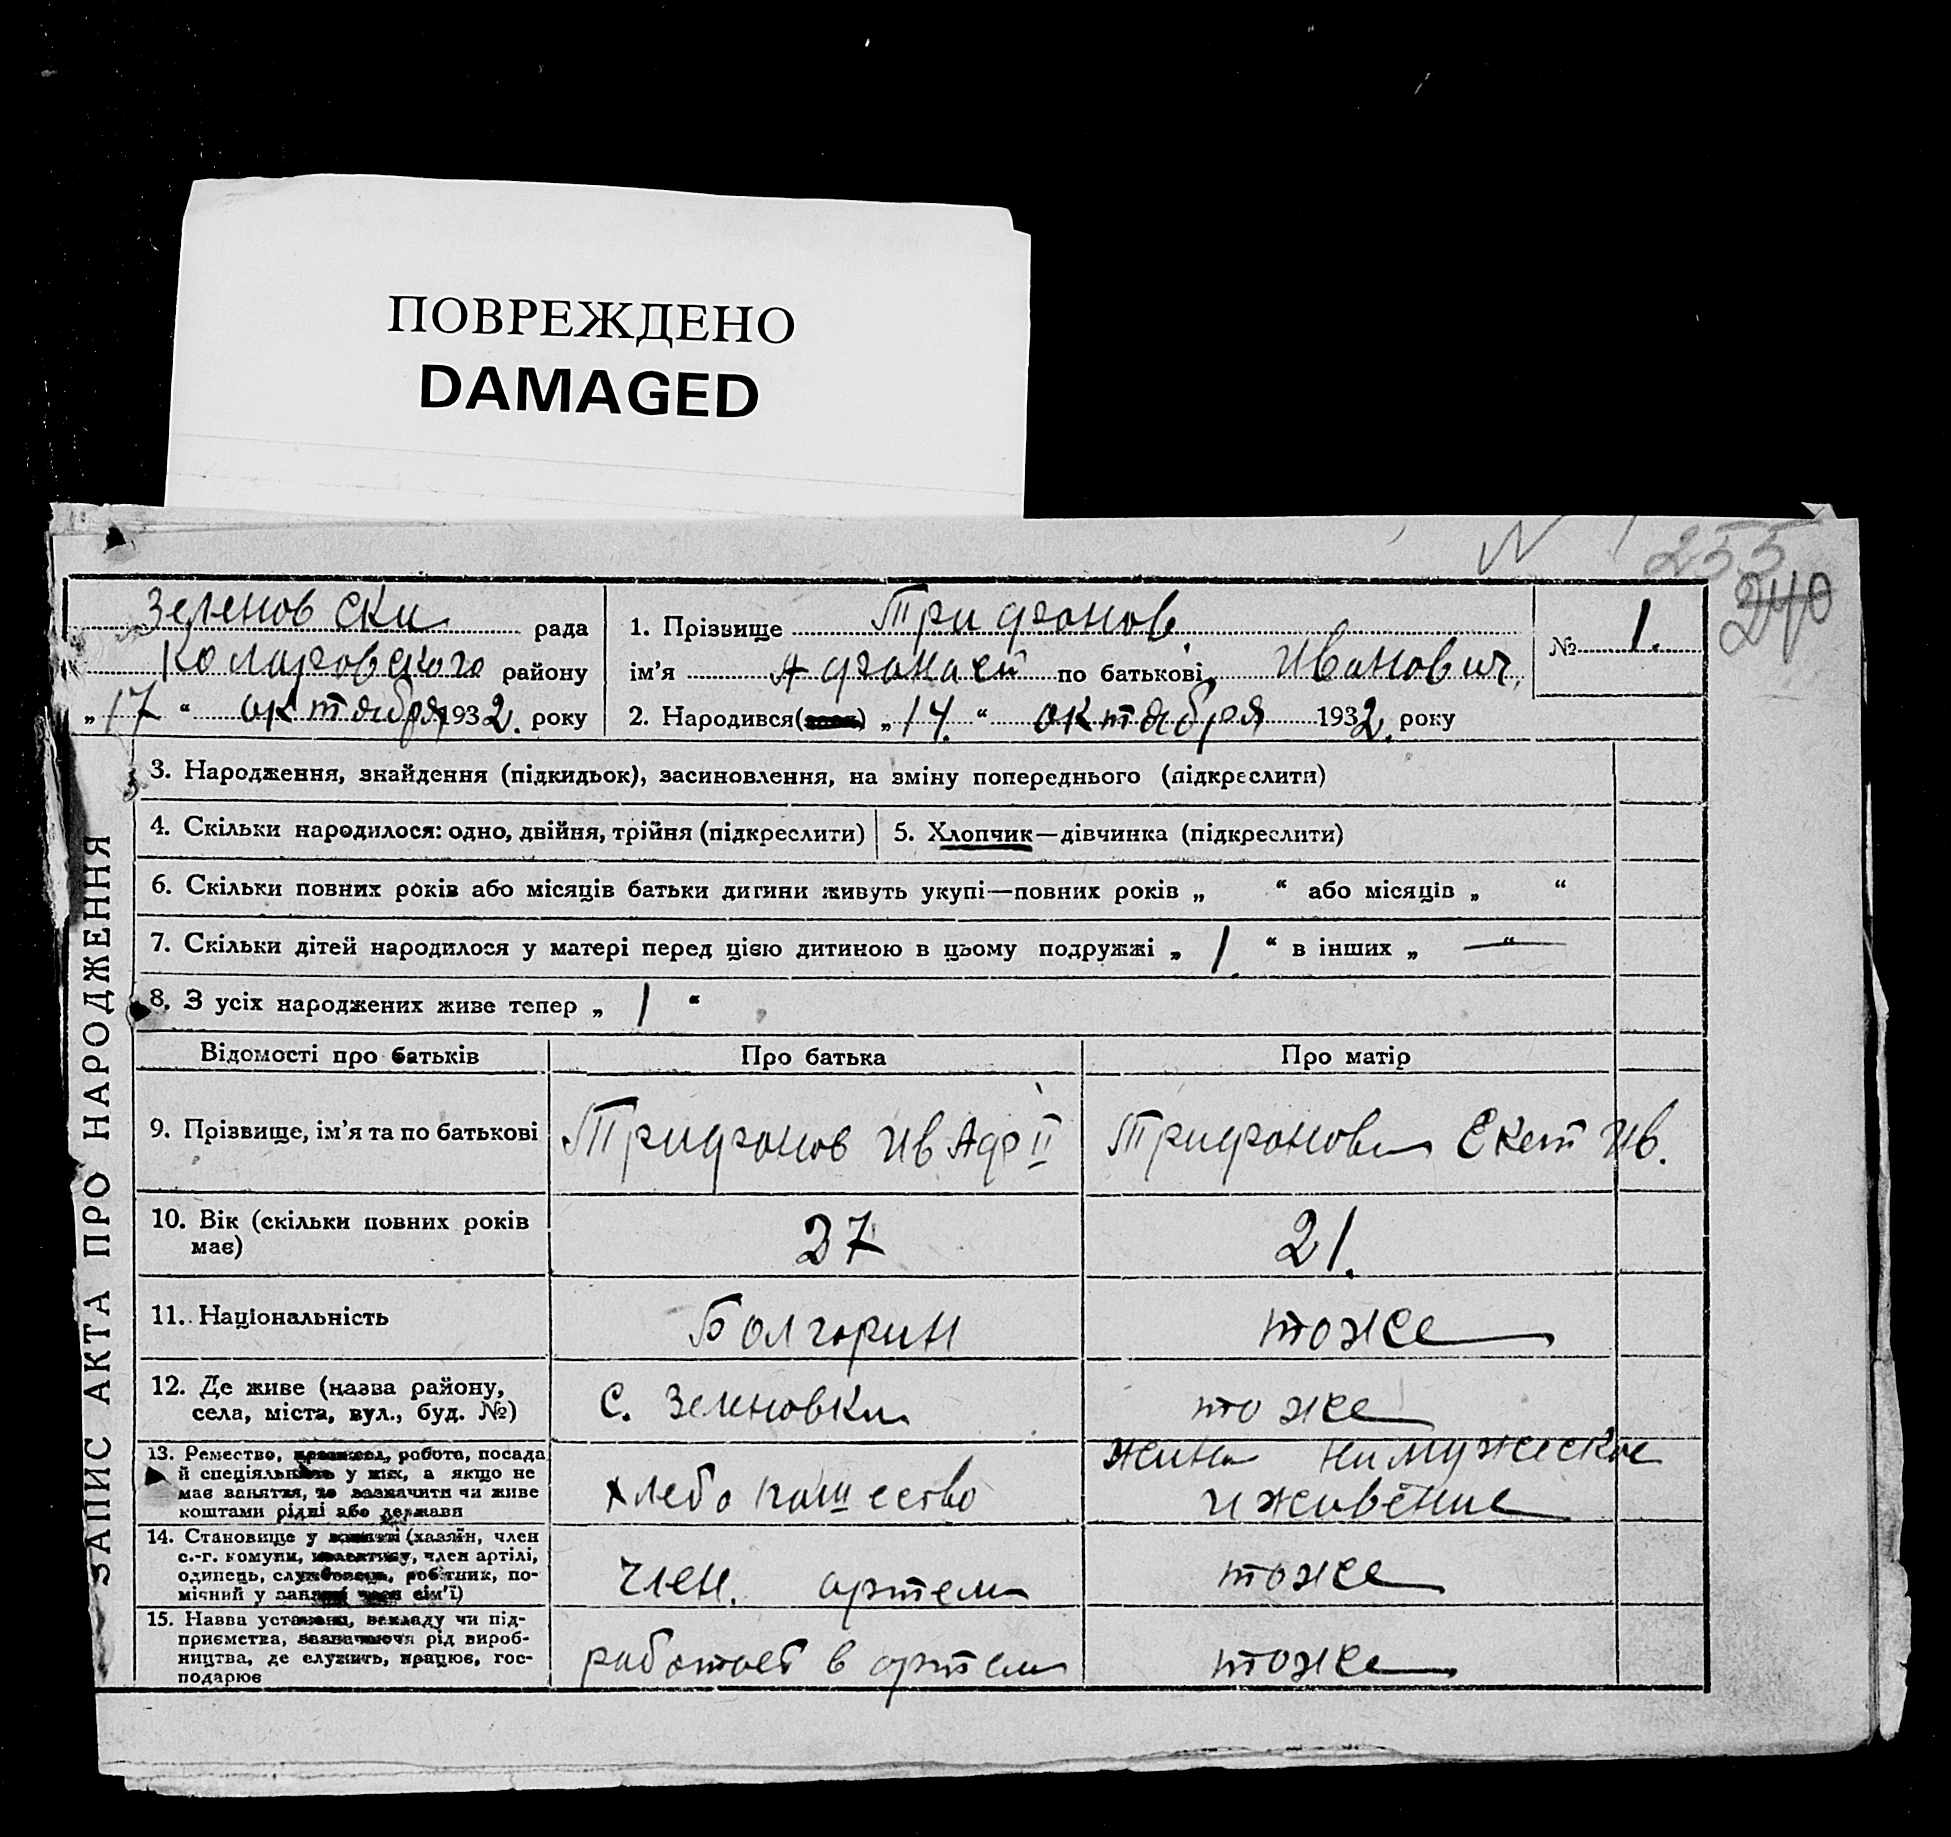 ПОВРЕЖДЕНО
DAMAGED
N 1 255
240
Зеленовски рада
Коларовского району
„17“ октября 1932. року
1. Прізвище Трифонов
ім’я Афанасій по батькові Иванович
2. Народився „14.“ октября 1932. року
№ 1.
ЗАПИС АКТА ПРО НАРОДЖЕННЯ
3. Народження, знайдення (підкидьок), засиновлення, на зміну попереднього (підкреслити)
4. Скільки народилося: одно, двійня, трійня (підкреслити) 5. Хлопчик—дівчинка (підкреслити)
6. Скільки повних років або місяців батьки дитини живуть укупі—повних років „ “ або місяців „ “
7. Скільки дітей народилося у матері перед цією дитиною в цьому подружжі „ 1. “ в інших „ — “
8. З усіх народжених живе тепер „ 1 “
Відомості про батьків Про батька Про матір
9. Прізвище, ім’я та по батькові Трифонов Ив Аф II Трифонова Екат Ив.
10. Вік (скільки повних років
має) 27 21.
11. Національність Болгарин тоже
12. Де живе (назва району,
села, міста, вул., буд. №) с. Зеленовка тоже
13. Ремество, робота, посада
й спеціяльність у них, а якщо не
має заняття, то зазначити чи живе
коштами рідні або держави
хлебопашество
на мужеское
иживение
14. Становище у занятті (хазяїн, член
с.-г. комуни, колективу, член артілі,
одинець, службовець, робітник, по-
мічний у занятті член сім’ї)
член. артели тоже
15. Назва установи, закладу чи під-
приємства, зазначаючи рід вироб-
ництва, де служить, працює, гос-
подарює
работает в артели тоже